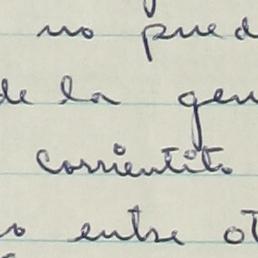 no pued
de la gen
corrientito
o entre ot